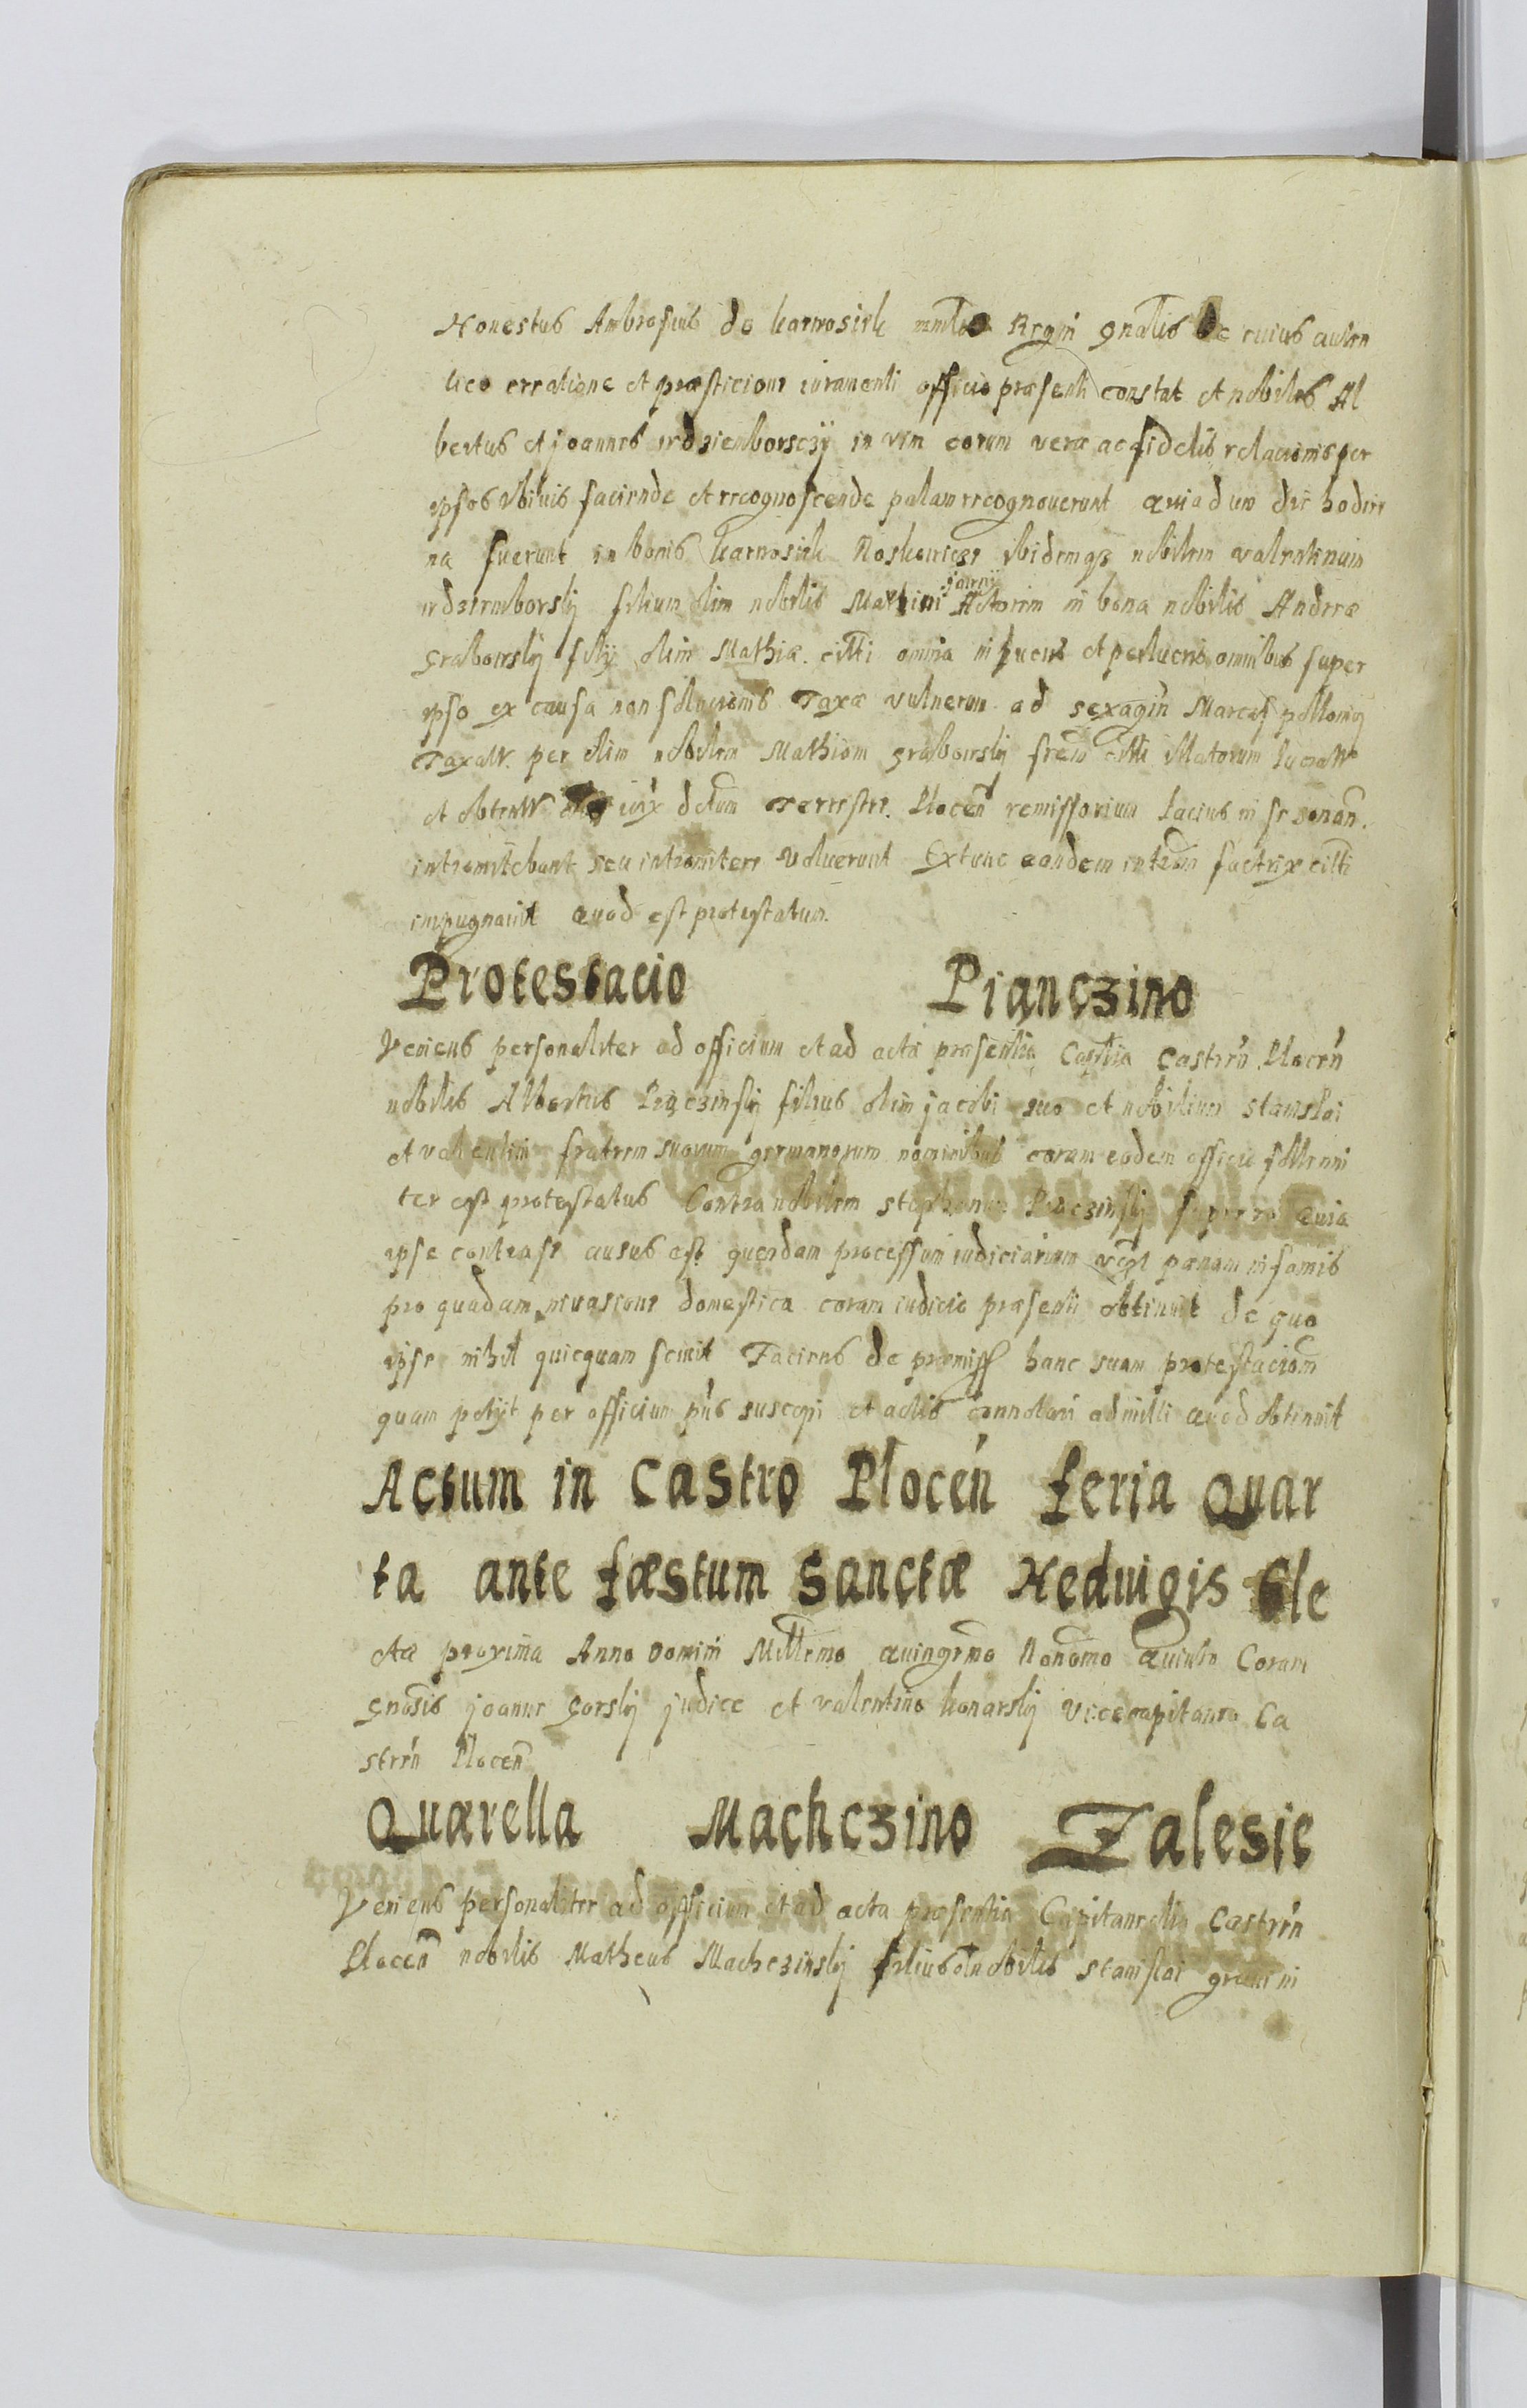 Honestus Ambrosius de karwosiek Regni gnalis De cuius auten
tico creatione et præsticione iuramenti officio præsenti constat et nobiles Al
bertus et joannes srdzienborsczÿ in vim eorum veræ ac fidelis relacionis per
ipsos Vbiuis faciende et recognoscende palam recognouerunt Quia dum die hodier
na fuerunt in bonis karwosiek Noskowicze ibidemqz nobilem valentinum
srdziemborskÿ filium olim nobilis Martini Actorem in bona nobilis Andreæ
Grabowskÿ filÿ olim Mathiæ. citti omnia in lucris et perlucris omnibus super
ipso ex causa non solucionis Taxæ vulnerum ad sexagin Marcas pollonig
Taxatt. per olim nobilem Mathiam grabowskÿ illatorum lucratt
et obtentt decretum Terrestre. Plocen remissorium lacius in se sonan.
intromitebant seu intromitere voluerunt Extunc eandem introm citti
impugnauit Quod est protestatum.
Protestacio Piączino
Veniens personaliter ad officium et ad acta præsentia Castren Plocen
nobilis Albertus Piączinskÿ filius olim jacobi suo et nobilium stanislai
et valentini fratrem suorum germanorum nominibus coram eodem officio sollenni
ter est protestatus Contra nobilem stephanum Piączinskÿ super eo Quia
ipse contra se ausus est quendam processum iudiciarium pænam infamis
pro quadam inuasione domestica coram iudicio præsenti obtinuit de quo
ipse nihil quicquam sciuit Faciens de premiss hanc suam protestaciom
quam petÿt per officium pns suscepi et actis connotari admitti Quod obtinuit
Actum in Castro Plocen feria Quar
ta ante fæstum Sanctæ Heduigis Ele
ctæ proxima Anno Domini Millemo Quingemo Nonomo Quinto Coram
Gnosis joanne Gorskÿ judice et valentino konarskÿ vicecapitaneo Ca
stren Plocen
Quærella Machczino Zalesie
Veniens personaliter ad officium et ad acta præsentia Capitanealia Castren
Plocen nobilis Matheus Machczinskÿ filius olim nobilis stanislai